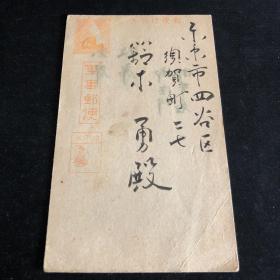 東京市四谷区
須賀町二七
鈴木勇殿
軍事郵便